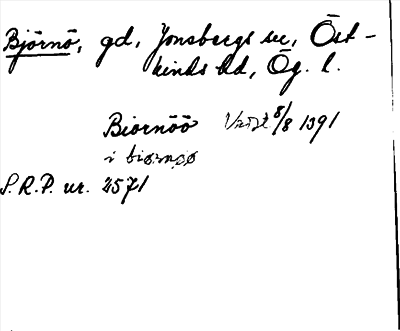 Björnö, gd, Jonsbergs sn, Öst-
kinds hd, Ög. l.
Biornöö 8/8 1391
i biornøø
S.R.P. nr. 2571